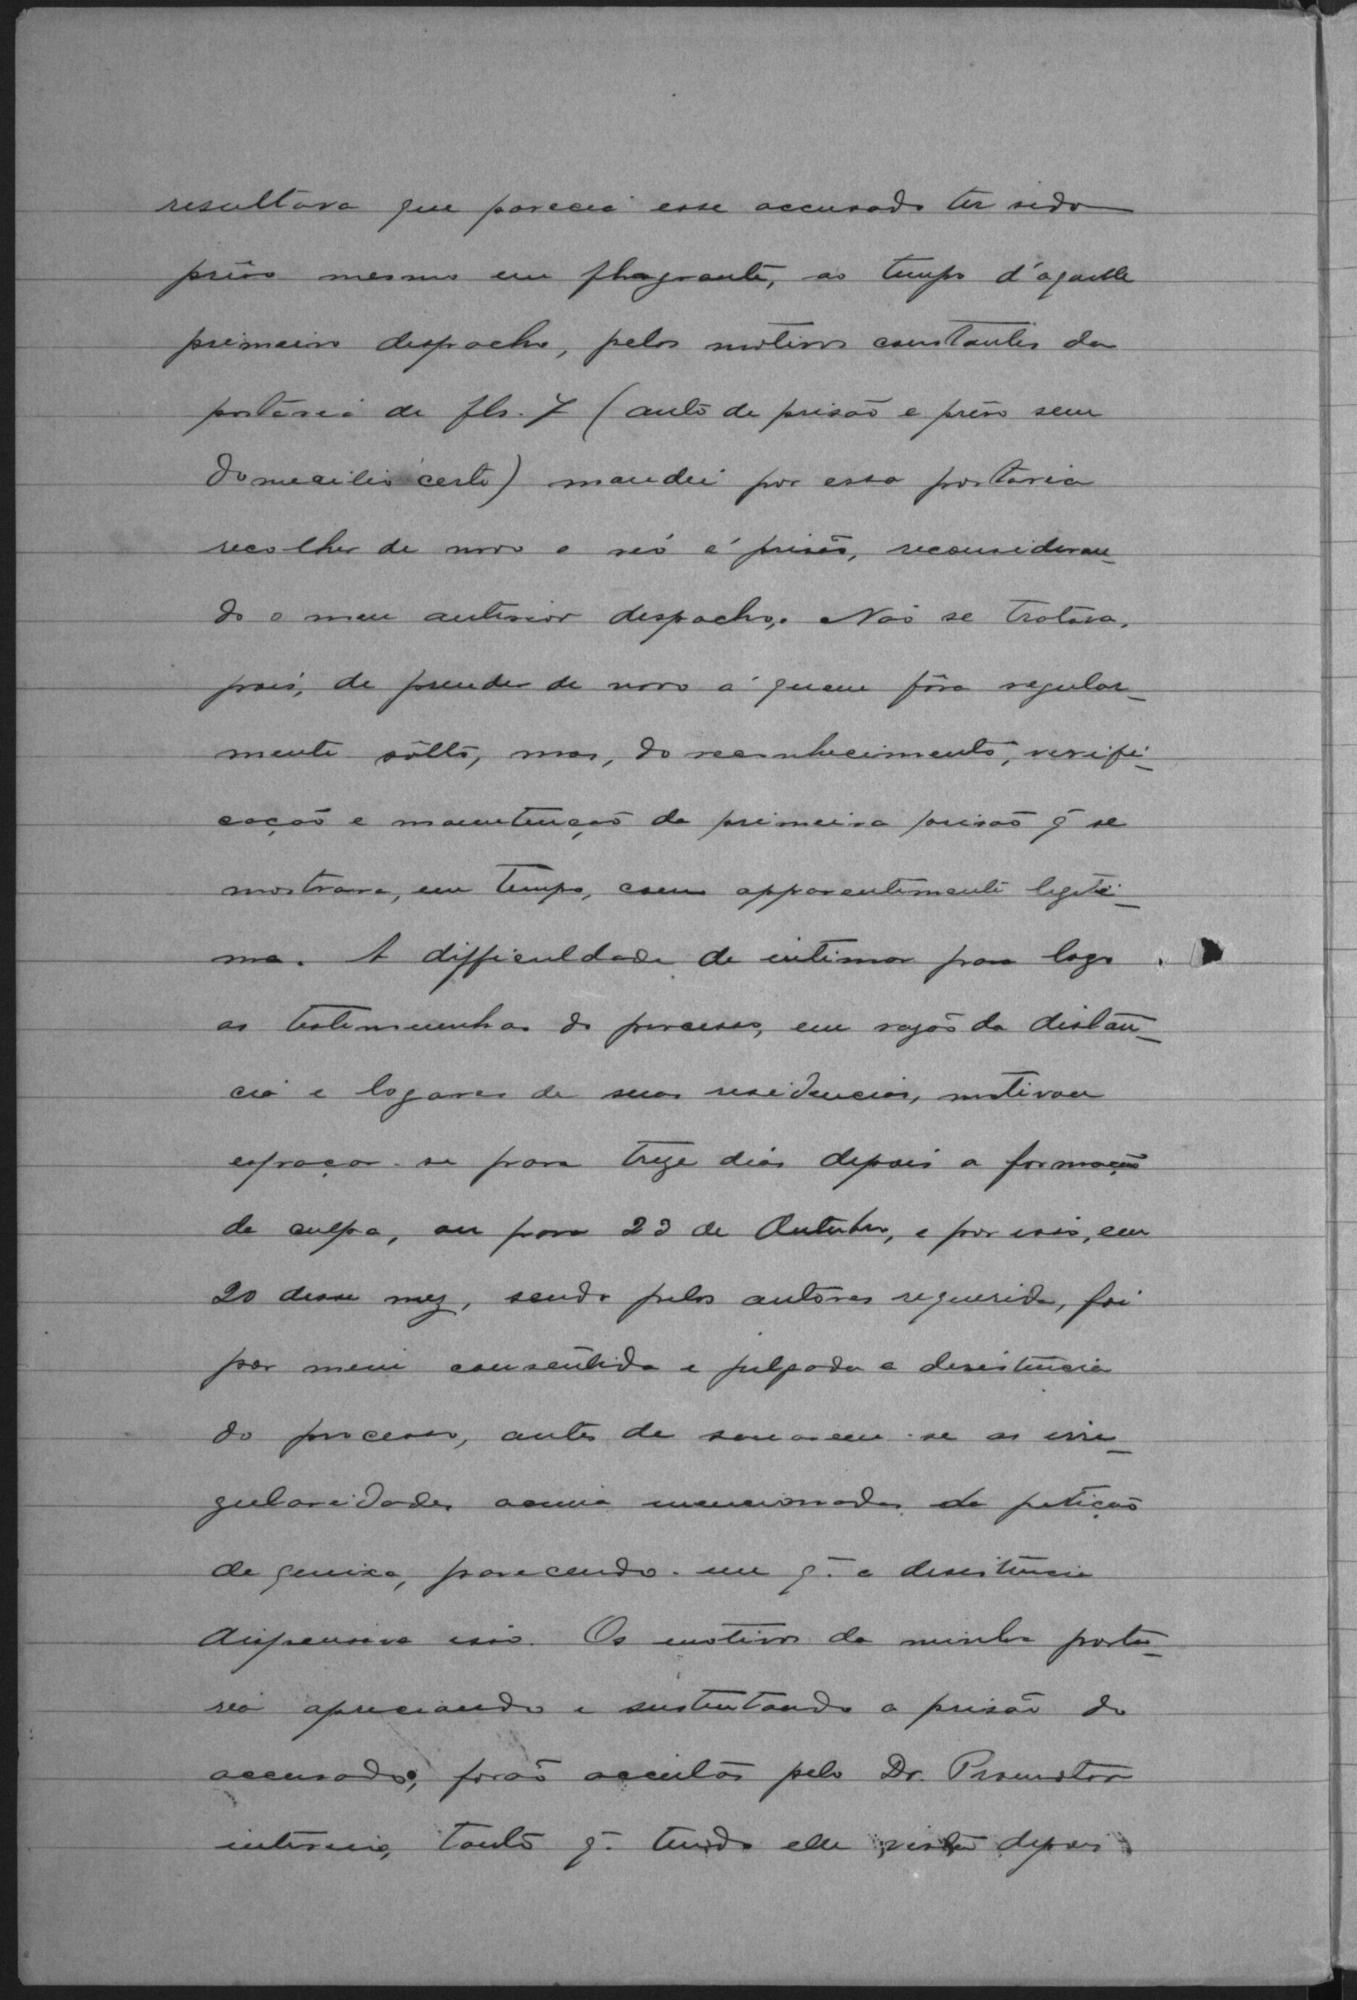 resultava que parecia esse accusado ter sido
prêso mesmo em flagrante, ao tempo d'aquelle
primeiro despacho, pelos motivos constantes da
portaria de fls. 7 (auto de prisão e prêso sem
domicilio certo) mandei por essa portaria
recolher de novo o reó á prisão, reconsideran-
do o meu anterior despacho. Não se tratava,
pois, de prender de novo á quem fôra regular-
mente sôlto, mas, do reconhecimento, verifi-
cação e manutenção da primeira prisão q̃ se
mostrara, em tempo, como apparentemente legiti-
ma. A difficuldade de intimar para logo
as testemunhas do processo, em razão da distan-
cia e logares de suas residencias, motivou
espaçar-se para treze dias depois a formação
da culpa, ou para 23 de Outubro, e por isso, em
20 desse mez, sendo pelos autores requerida, foi
por mim consentida e julgada a desistencia
do processo, antes de sanarem-se as irre-
gularidades acima mencionadas da petição
de queixa, parecendo-me q̃. a desistencia
dispensava isso. Os motivos da minha porta-
ria apreciando e sustentando a prisão do
accusado, forão acceitos pelo Dr. Promotor
interino, tanto q̃. tendo elle vista depois